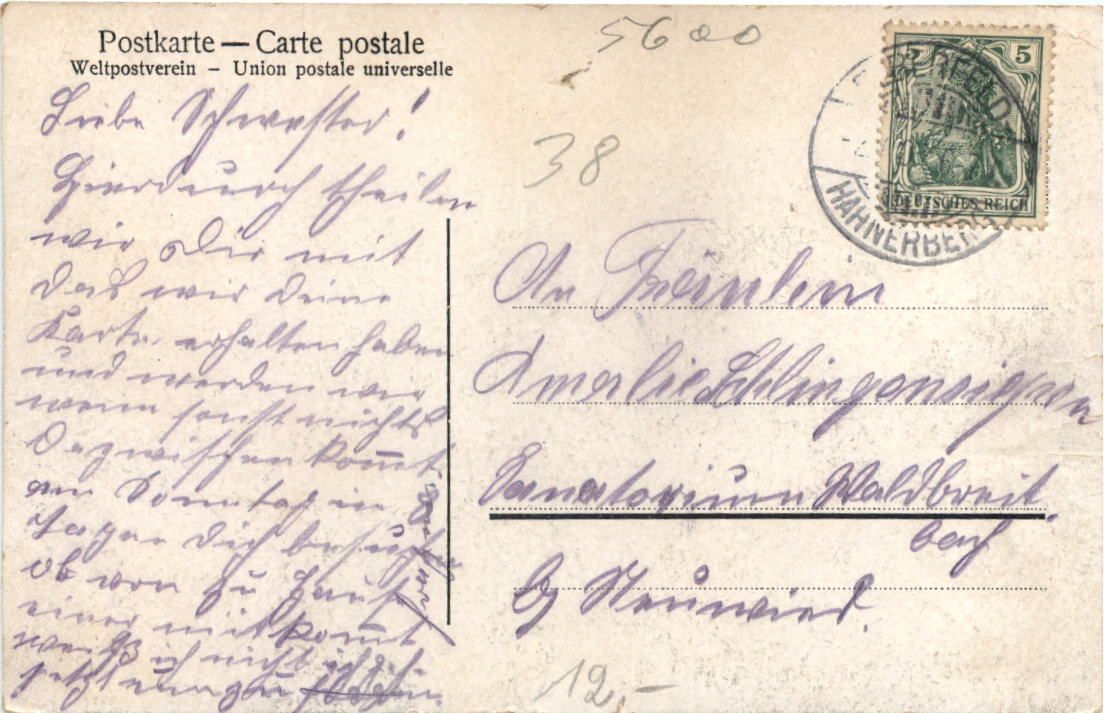 Postkarte — Carte postale
Weltpostverein – Union postale universelle
5600
38
12,-
5
DEUTSCHES REICH
ELBERFELD
HAHNERBERG
Liebe Schwester!
Hierdurch theilen
wir Dir mit
das wir deine
Karte erhalten haben
und werden wir
wenn sonst nichts
dazwischen kommt
am Sonntag in
Tagen dich besuchen
ob von zu Hause
einer mitkommt
weiß ich nicht
jetzt
An Fräulein
Amalie Schlingensiepen
Sanatorium Waldbreit
bach
b/ Neuwied.